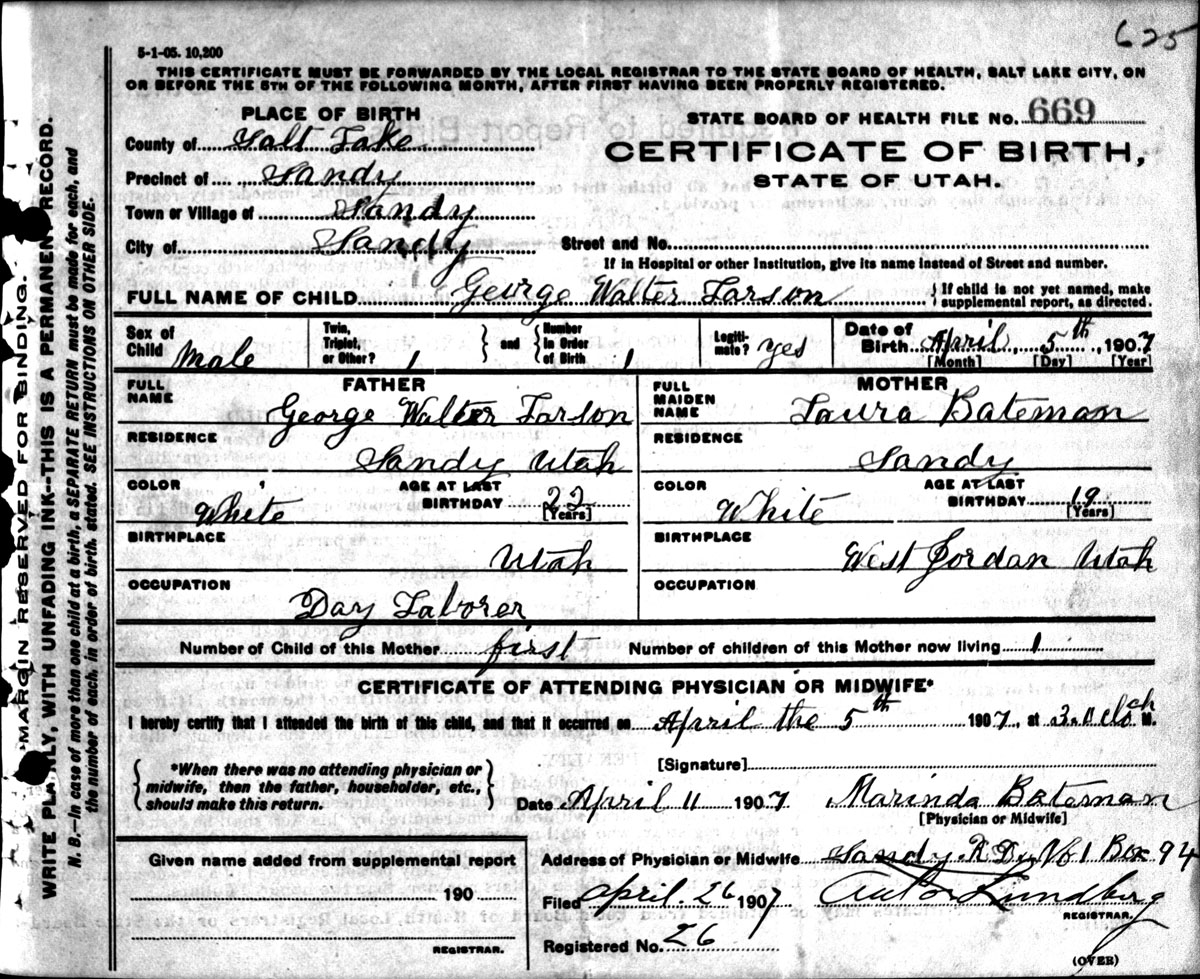 625
5-1-05. 10,200
THIS CERTIFICATE MUST BE FORWARDED BY THE LOCAL REGISTRAR TO THE STATE BOARD OF HEALTH, SALT LAKE CITY, ON
OR BEFORE THE 5TH OF THE FOLLOWING MONTH, AFTER FIRST HAVING BEEN PROPERLY REGISTERED.
PLACE OF BIRTH
County of Salt Lake
Precinct of Sandy
Town or Village of Sandy
City of Sandy
STATE BOARD OF HEALTH FILE No. 669
CERTIFICATE OF BIRTH,
STATE OF UTAH.
Street and No.
If in Hospital or other Institution, give its name instead of Street and number.
FULL NAME OF CHILD George Walter Larson } If child is not yet named, make supplemental report, as directed.
Sex of Child Male
Twin, Triplet, or Other? 1 } and { Number in Order of Birth 1
Legitimate? yes
Date of Birth April 5th, 1907
[Month] [Day] [Year]
FATHER
FULL NAME George Walter Larson
RESIDENCE Sandy Utah
COLOR White AGE AT LAST BIRTHDAY 22 [Years]
BIRTHPLACE Utah
OCCUPATION Day Laborer
MOTHER
FULL MAIDEN NAME Laura Bateman
RESIDENCE Sandy
COLOR White AGE AT LAST BIRTHDAY 19 [Years]
BIRTHPLACE West Jordan Utah
OCCUPATION
Number of Child of this Mother first Number of children of this Mother now living 1
CERTIFICATE OF ATTENDING PHYSICIAN OR MIDWIFE*
I hereby certify that I attended the birth of this child, and that it occurred on April the 5th 1907, at 3 M.
{ *When there was no attending physician or
midwife, then the father, householder, etc.,
should make this return. }
[Signature]
Date April 11 1907 Marinda Bateman
[Physician or Midwife]
Given name added from supplemental report
190
REGISTRAR.
Address of Physician or Midwife Sandy. Box 94
Filed April. 26 1907 Lundberg
REGISTRAR.
Registered No. 26
(OVER)
MARGIN RESERVED FOR BINDING.
WRITE PLAINLY, WITH UNFADING INK--THIS IS A PERMANENT RECORD.
N. B.—In case of more than one child at a birth, a SEPARATE RETURN must be made for each, and
the number of each, in order of birth, stated. SEE INSTRUCTIONS ON OTHER SIDE.